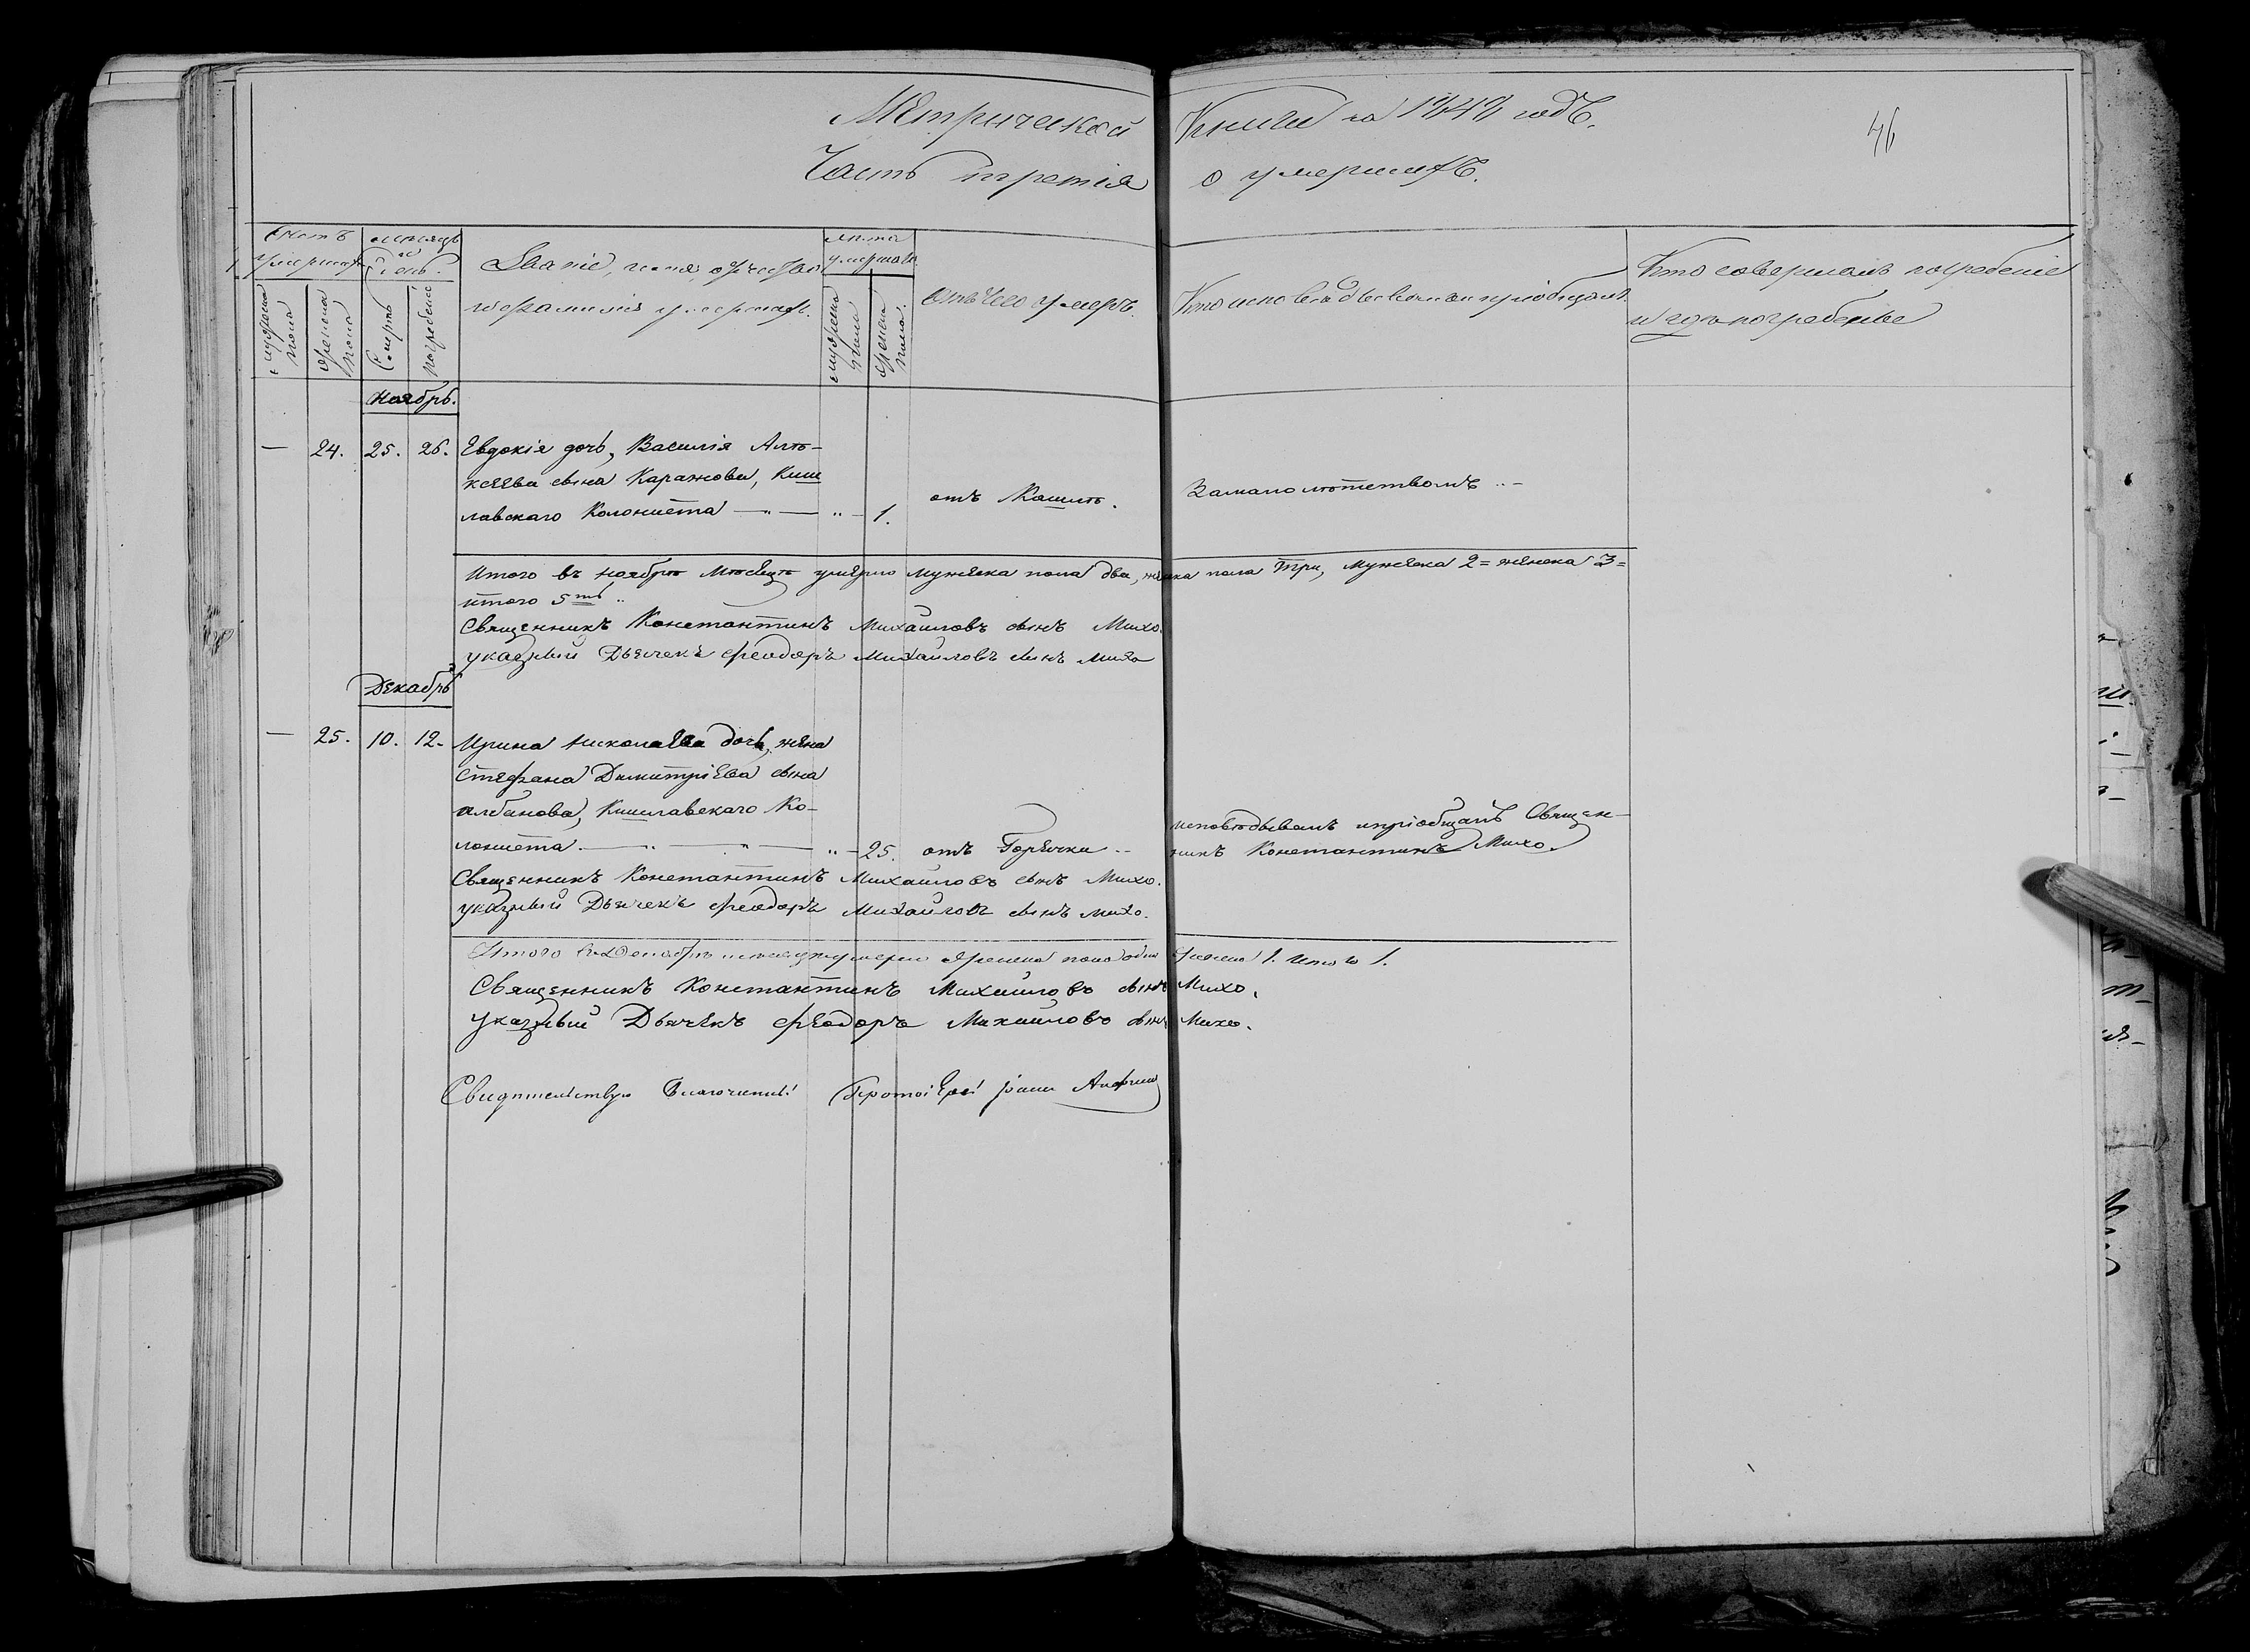 Метрической Книги на 1842 годъ.
46
Часть третія о умершихъ.
Счетъ умершихъ
мужеска пола
женска пола
Мѣсяцъ и день.
Смерть
погребеніе
Званіе, имя, отчество
и фамилія умершаго.
лѣта умершаго
мужеска пола
женска пола.
Отъ чего умеръ.
Кто исповѣдывалъ и пріобщалъ.
Кто совершалъ погребеніе
и гдѣ погребены
Ноябрь.
— 24. 25. 26. Евдокія дочь, Василія Алѣ-
ксѣева сына Каражова, Киш
лавскаго Колониста — „ — „ — 1. отъ Кашлѣ. За малолѣтствомъ „ —
Итого въ ноябрѣ мѣсяцѣ умерло мужеска пола два, женска пола три, мужеска 2 = женска 3 =
итого 5ть „
Священникъ Константинъ Михаиловъ сынъ Михо.
указный Дьячекъ Феодоръ Михайловъ сынъ Михо
Декабрь
— 25. 10. 12. Ирина Николаева дочь, жена
Стефана Димитріева сына
Албанова, Кишлавскаго Ко-
лониста. — „ — „ — „ — 25. отъ Горячки „ исповѣдывалъ ипріобщалъ Священ-
никъ Константинъ Михо.
Священникъ Константинъ Михаиловъ сынъ Михо.
указный Дьячекъ Феодоръ Михайловъ сынъ Михо.
Итого въ Декабрѣ мѣсяцѣ умерло женска пола одна женска 1. Итого 1.
Священникъ Константинъ Михаиловъ сынъ Михо.
указный Дьячекъ Феодоръ Михаиловъ сынъ Михо.
Свидѣтельствую Благочинный Протоіерей